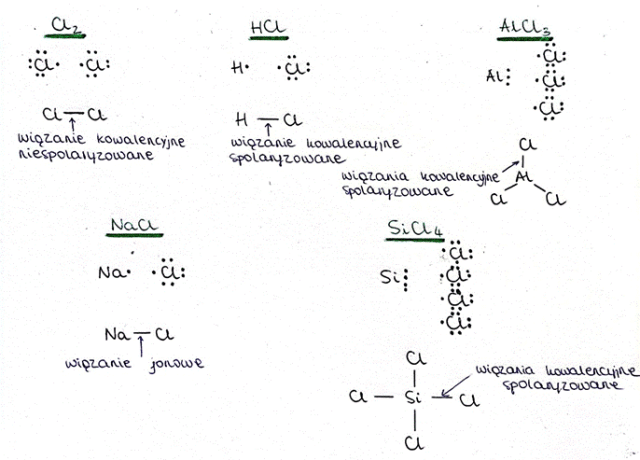 Cl₂
:Cl· ·Cl:
Cl — Cl
wiązanie kowalencyjne
niespolaryzowane
HCl
H· ·Cl:
H — Cl
wiązanie kowalencyjne
spolaryzowane
AlCl₃
Al
·Cl:
·Cl:
·Cl:
wiązania kowalencyjne
spolaryzowane
Cl
Al
Cl Cl
NaCl
Na· ·Cl:
Na — Cl
wiązanie jonowe
SiCl₄
Si
·Cl:
·Cl:
·Cl:
·Cl:
Cl
Cl — Si — Cl
Cl
wiązania kowalencyjne
spolaryzowane